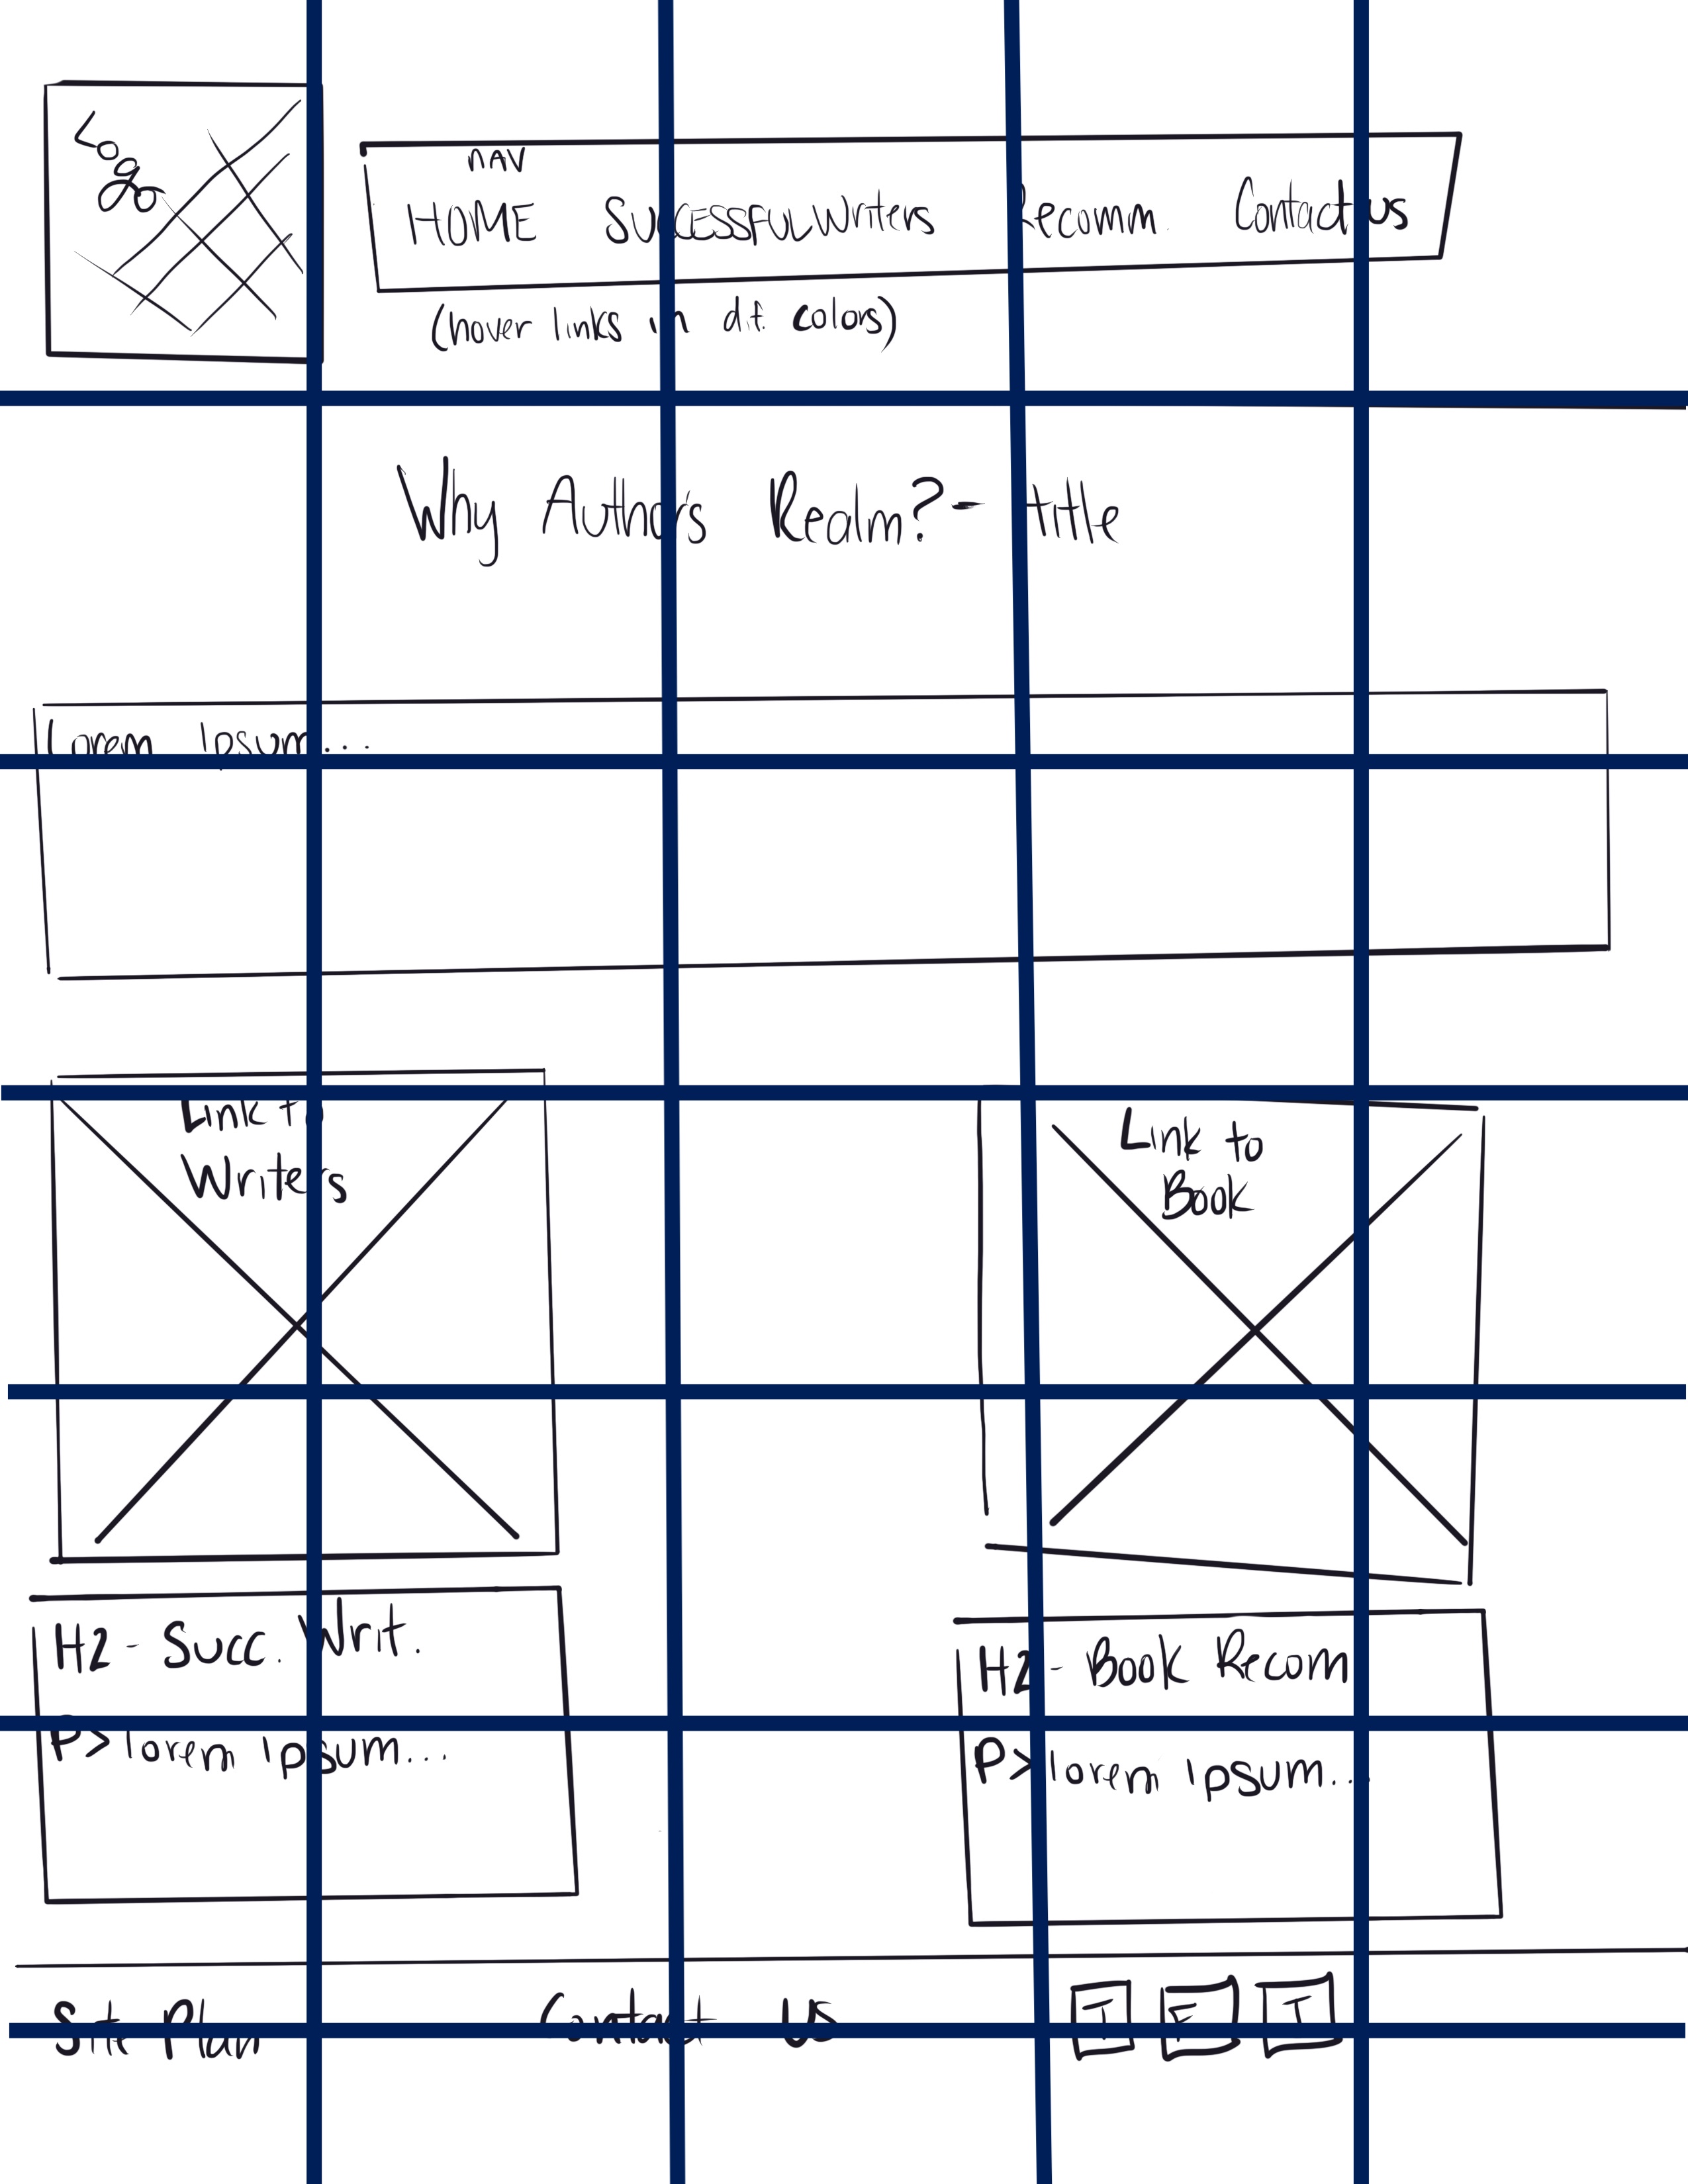 Logo
nav
HOME Successful Writers Recomm. Contact us
(hover links in dif. colors)
Why Authors Realm? - title
Lorem Ipsum...
Link to
Writers
Link to
Book
H2 - Succ. Writ.
P> lorem ipsum...
H2 - Book Recom
P> lorem ipsum...
Site Plan Contact Us I F T